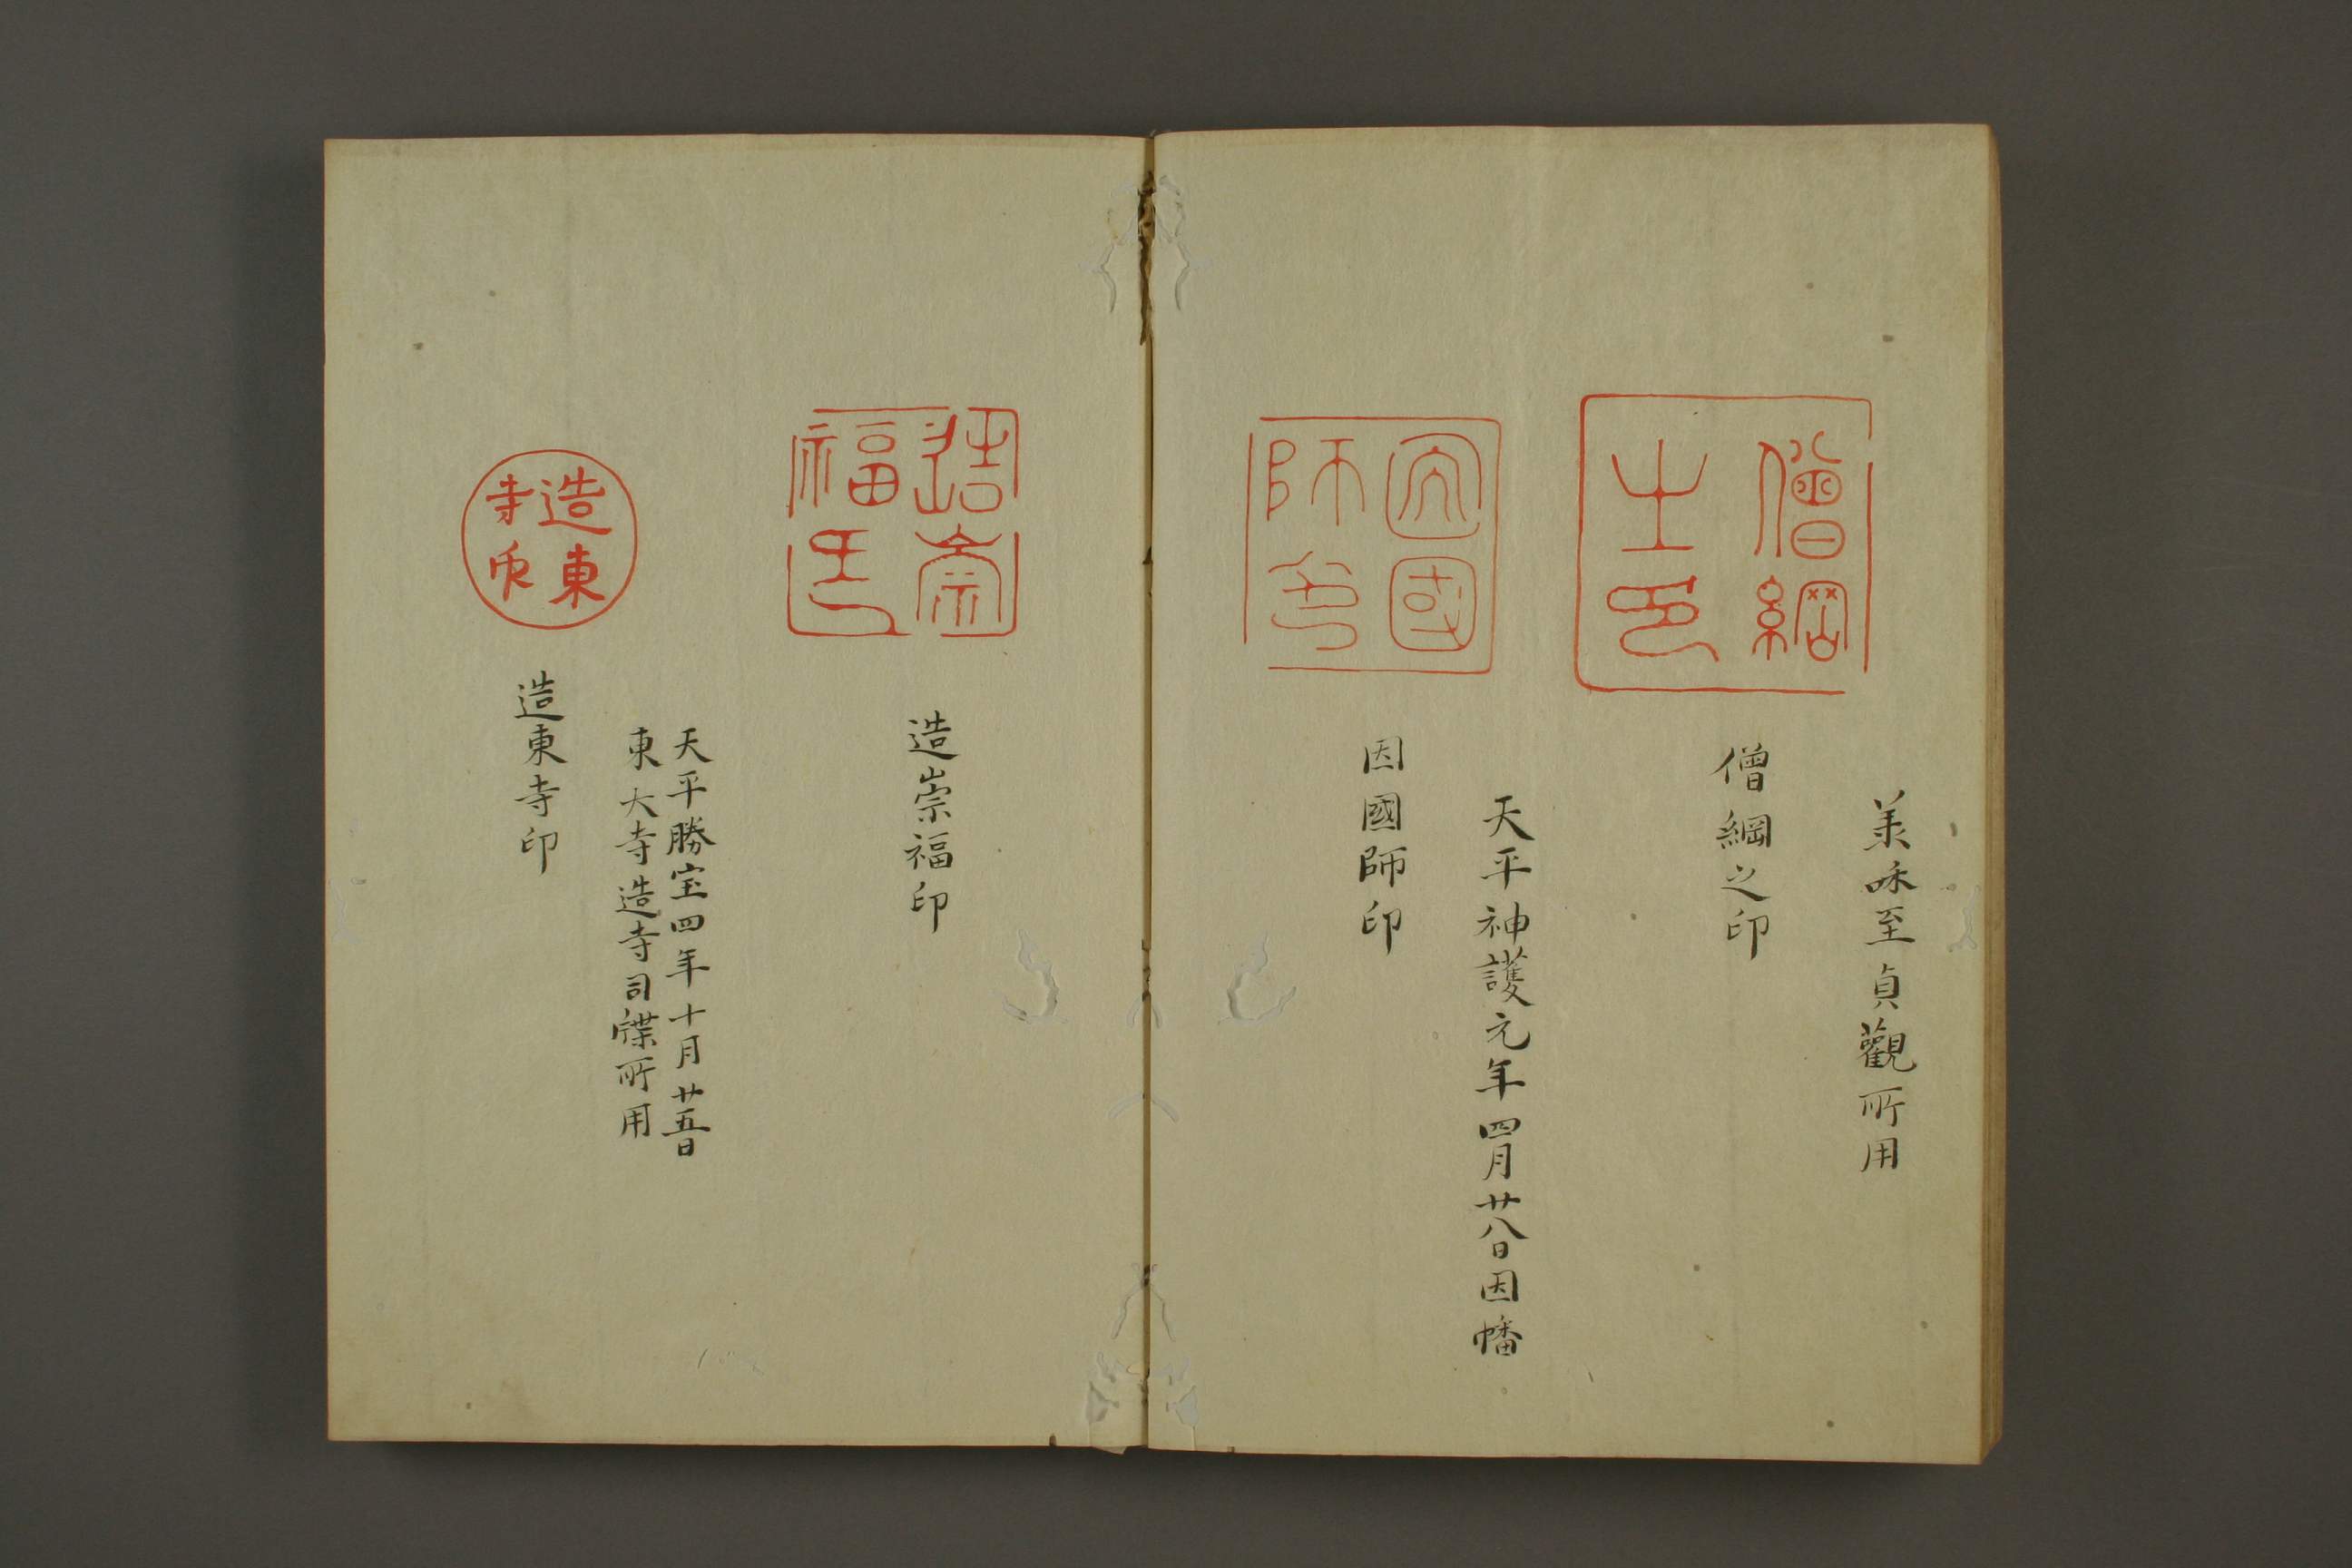 承咊至貞觀所用
僧綱
之印
僧綱之印
天平神護元年四月廿八日因幡
因國
師印
因國師印
造崇
福印
造崇福印
天平勝宝四年十月廿五日
東大寺造寺司牒所用
造東
寺印
造東寺印